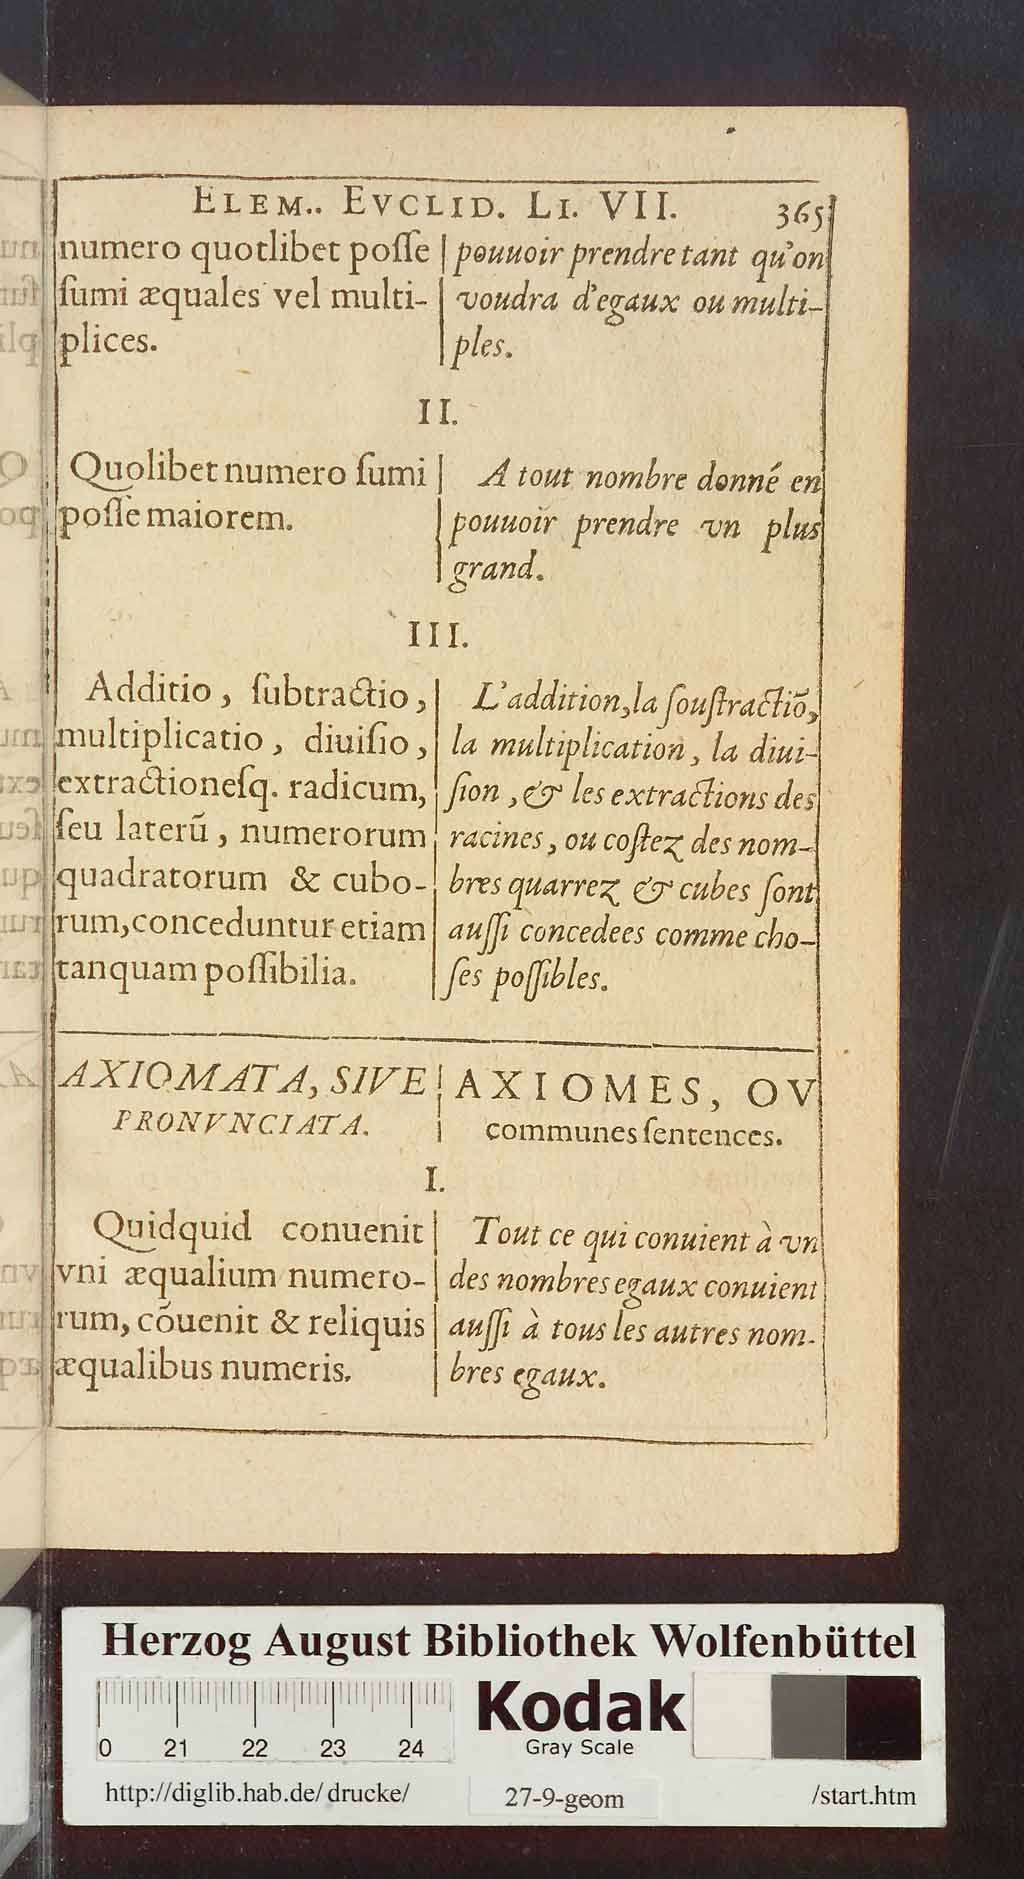 ELEM.. EVCLID. LI. VII. 365
numero quotlibet poſſe
ſumi æquales vel multi-
plices.
pouuoir prendre tant qu'on
voudra d'egaux ou multi-
ples.
II.
Quolibet numero ſumi
poſſe maiorem.
A tout nombre donné en
pouuoir prendre vn plus
grand.
III.
Additio, ſubtractio,
multiplicatio, diuiſio,
extractioneſq. radicum,
ſeu laterũ, numerorum
quadratorum & cubo-
rum, conceduntur etiam
tanquam poſſibilia.
L'addition, la ſouſtractiõ,
la multiplication, la diui-
ſion, & les extractions des
racines, ou coſtez des nom-
bres quarrez & cubes ſont
auſſi concedees comme cho-
ſes poſſibles.
AXIOMATA, SIVE
PRONVNCIATA.
AXIOMES, OV
communes ſentences.
I.
Quidquid conuenit
vni æqualium numero-
rum, cõuenit & reliquis
æqualibus numeris.
Tout ce qui conuient à vn
des nombres egaux conuient
auſſi à tous les autres nom-
bres egaux.
Herzog August Bibliothek Wolfenbüttel
0 21 22 23 24
Kodak
Gray Scale
http://diglib.hab.de/drucke/ 27-9-geom /start.htm